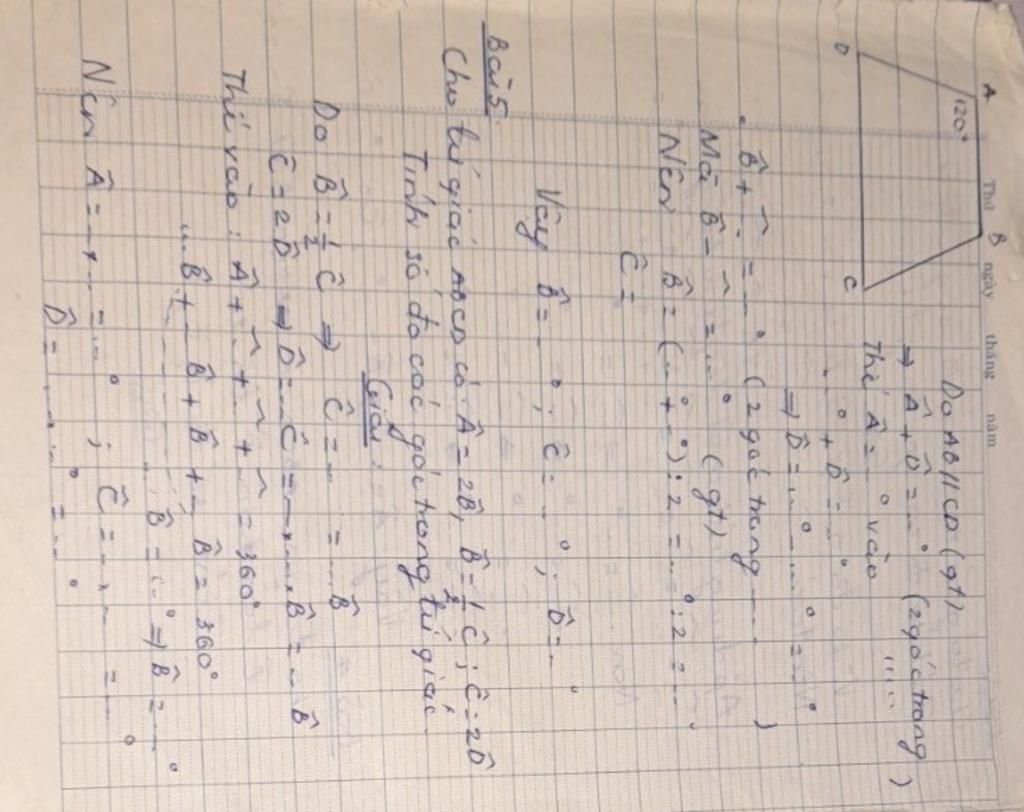 Thứ ngày tháng năm
A B
120°
D C
Do AB // CD (gt)
⇒ Â + D̂ = ...° (2 góc trong ..... )
Thế Â = ...° vào
...° + D̂ = ...°
⇒ D̂ = ...° ... ...° = ...°
B̂ + ...̂ = ...° (2 góc trong ..... )
Mà B̂ - ...̂ = ...° (gt)
Nên B̂ = (...° + ...°) : 2 = ...° : 2 = ...
Ĉ =
Vậy B̂ = ...°; Ĉ = ...°; D̂ = ...°
Bài 5:
Cho tứ giác ABCD có Â = 2B̂, B̂ = 1/2 Ĉ; Ĉ = 2D̂
Tính số đo các góc trong tứ giác.
Giải:
Do B̂ = 1/2 Ĉ ⇒ Ĉ = ... = ... B̂
Ĉ = 2D̂ ⇒ D̂ = ... Ĉ = ... . ... B̂ = ... B̂
Thế vào: Â + ...̂ + ...̂ + ...̂ = 360°
... B̂ + ... B̂ + B̂ + ... B̂ = 360°
... B̂ = ...° ⇒ B̂ = ...°
Nên Â = ... . ... = ...°; Ĉ = ... . ... = ...°
D̂ = ... . ...° = ...°